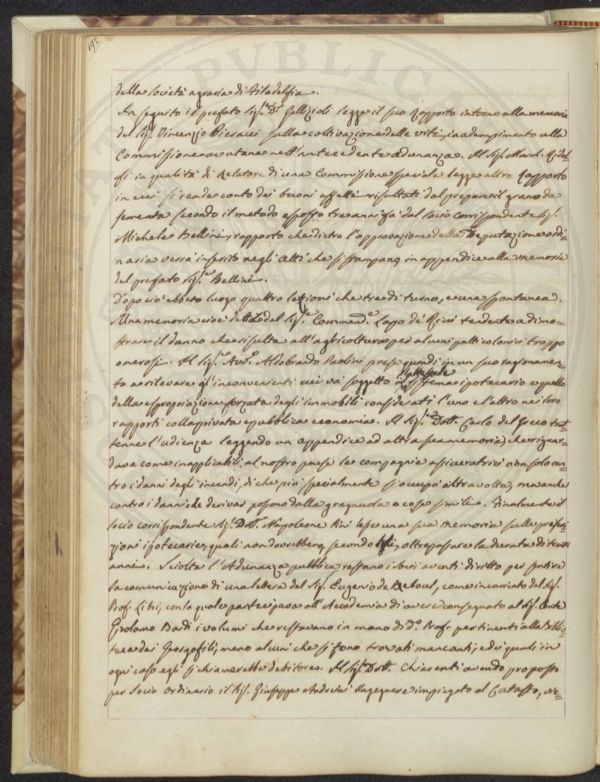 192
della Società agraria di Filadelfia.
In seguito il prefato Sig.r D.r Gallizioli legge il suo Rapporto intorno alla memoria
del Sig. Vincenzio Pieracci sulla coltivazione delle viti, in adempimento alla
Commissione avutane nell'antecedente adunanza. Il Sig. March. Ridol
fi in qualità di Relatore di una Commissione speciale legge altro Rapporto
in cui si rende conto dei buoni effetti risultati dal preparare il grano da
sementa secondo il metodo esposto tre anni fà dal Socio corrispondente Sig.
Michele Bellini, rapporto che dietro l'approvazione della Deputazione ordi-
naria verrà inserito negli Atti che si stampano in appendice alla memoria
del prefato Sig.r Bellini.
Dopo ciò ebbero luogo quattro lezioni che tre di turno, e una spontanea.
Una memoria cioè del Sig. Commend.e Lapo de' Ricci tendente a dimo-
strare il danno che risulta all'agricoltura ed alcuni patti colonici troppo
onerosi. Il Sig.r Avv. Aldobrando Paolini prese quindi in un suo ragionamen-
to a rilevare gl'inconvenienti cui va soggetto l'attuale sistema ipotecario e quello
della espropriazione forzata degli immobili considerati l'uno e l'altro nei loro
rapporti colla privata e pubblica economia. Il Sig.r Dott. Carlo del Greco trat
tenne l'udienza leggendo un appendice ad altra sua memoria, che riguar-
dava come inapplicabili al nostro paese le compagnie assicuratrici non solo con
tro i danni degli incendj, di che più specialmente si occupò altra volta, ma anche
contro i danni che derivar possono dalla gragnuola o cose simili. Finalmente il
Socio corrispondente Sig. Dott. Napoleone Pini lesse una sua memoria sulle prescri
zioni ipotecarie, quali non dovrebbero, secondo lui, oltrepassare la durata di trent
anni. Sciolta l'Adunanza pubblica restano i Soci aventi diritto per sentire
la comunicazione di una lettera del Sig. Eugenio de Reboul, come incaricato dal Sig.
Prof. Libri, con la quale partecipava all'Accademia di avere consegnato al Sig. Conte
Girolamo Bardi i volumi che restavano in mano di d.o Prof. pertinenti alla Biblio
teca dei Georgofili, meno alcuni che si sono trovati mancanti, e dei quali in
ogni caso egli si chiamerebbe debitore. Il Sig. Dott. Chiarenti avendo proposto
per Socio Ordinario il Sig. Giuseppe Andreini Ingegnere impiegato al Catasto, vie-